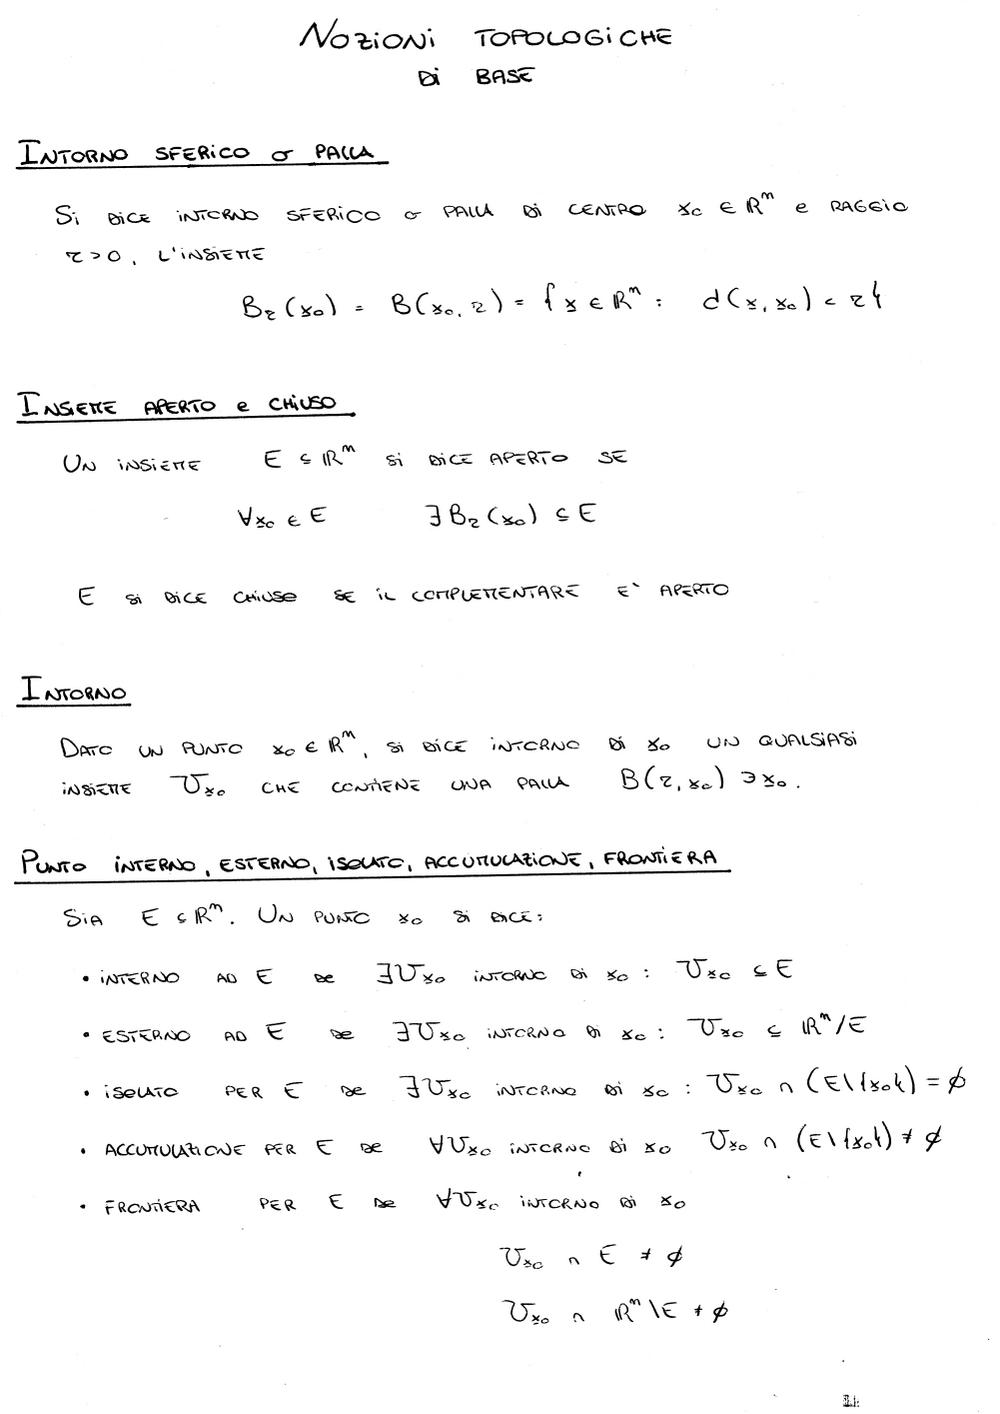 NOZIONI TOPOLOGICHE
DI BASE
INTORNO SFERICO O PALLA
SI DICE INTORNO SFERICO O PALLA DI CENTRO x₀ ∈ ℝⁿ E RAGGIO
r>0, L'INSIEME
Bᵣ(x₀) = B(x₀, r) = {x ∈ ℝⁿ : d(x, x₀) < r}
INSIEME APERTO E CHIUSO
UN INSIEME E ⊆ ℝⁿ SI DICE APERTO SE
∀x₀ ∈ E ∃Bᵣ(x₀) ⊆ E
E SI DICE CHIUSO SE IL COMPLEMENTARE E' APERTO
INTORNO
DATO UN PUNTO x₀ ∈ ℝⁿ, SI DICE INTORNO DI x₀ UN QUALSIASI
INSIEME Uₓ₀ CHE CONTIENE UNA PALLA B(r, x₀) ∋ x₀.
PUNTO INTERNO, ESTERNO, ISOLATO, ACCUMULAZIONE, FRONTIERA
SIA E ⊆ ℝⁿ. UN PUNTO x₀ SI DICE:
• INTERNO AD E se ∃Uₓ₀ INTORNO DI x₀ : Uₓ₀ ⊆ E
• ESTERNO AD E se ∃Uₓ₀ INTORNO DI x₀ : Uₓ₀ ⊆ ℝⁿ/E
• ISOLATO PER E se ∃Uₓ₀ INTORNO DI x₀ : Uₓ₀ ∩ (E\{x₀}) = ∅
• ACCUMULAZIONE PER E se ∀Uₓ₀ INTORNO DI x₀ Uₓ₀ ∩ (E\{x₀}) ≠ ∅
• FRONTIERA PER E se ∀Uₓ₀ INTORNO DI x₀
Uₓ₀ ∩ E ≠ ∅
Uₓ₀ ∩ ℝⁿ\E ≠ ∅